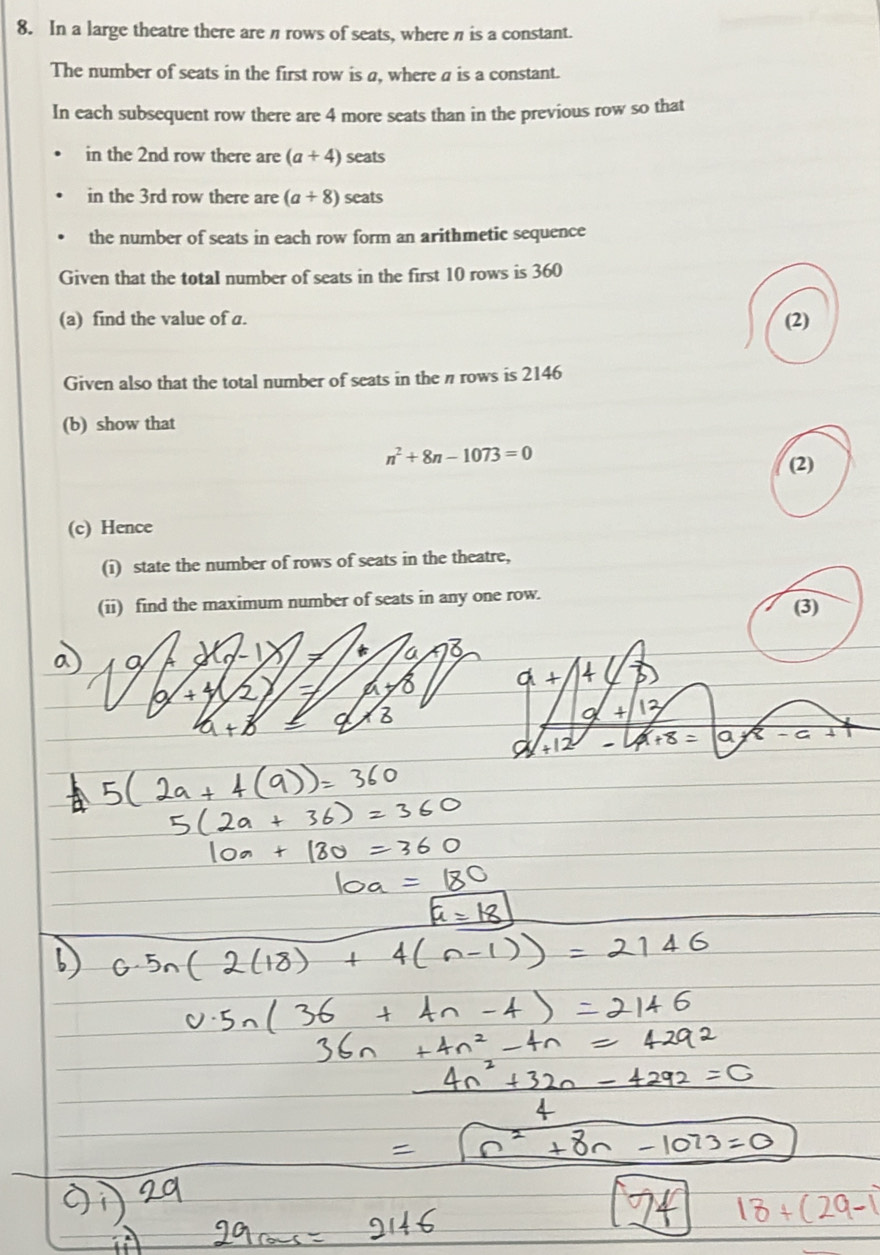 8. In a large theatre there are n rows of seats, where n is a constant.
The number of seats in the first row is a, where a is a constant.
In each subsequent row there are 4 more seats than in the previous row so that
• in the 2nd row there are (a + 4) seats
• in the 3rd row there are (a + 8) seats
• the number of seats in each row form an arithmetic sequence
Given that the total number of seats in the first 10 rows is 360
(a) find the value of a.
(2)
Given also that the total number of seats in the n rows is 2146
(b) show that
n² + 8n − 1073 = 0
(2)
(c) Hence
(i) state the number of rows of seats in the theatre,
(ii) find the maximum number of seats in any one row.
(3)
a)
a + 12
5(2a + 4(9)) = 360
5(2a + 36) = 360
10a + 180 = 360
10a = 180
a = 18
b) 0.5n(2(18) + 4(n-1)) = 2146
0.5n(36 + 4n - 4) = 2146
36n + 4n² - 4n = 4292
4n² + 32n - 4292 = 0
4
= n² + 8n - 1073 = 0
c) i) 29
ii) 29 rows = 2146
18 + (29-1